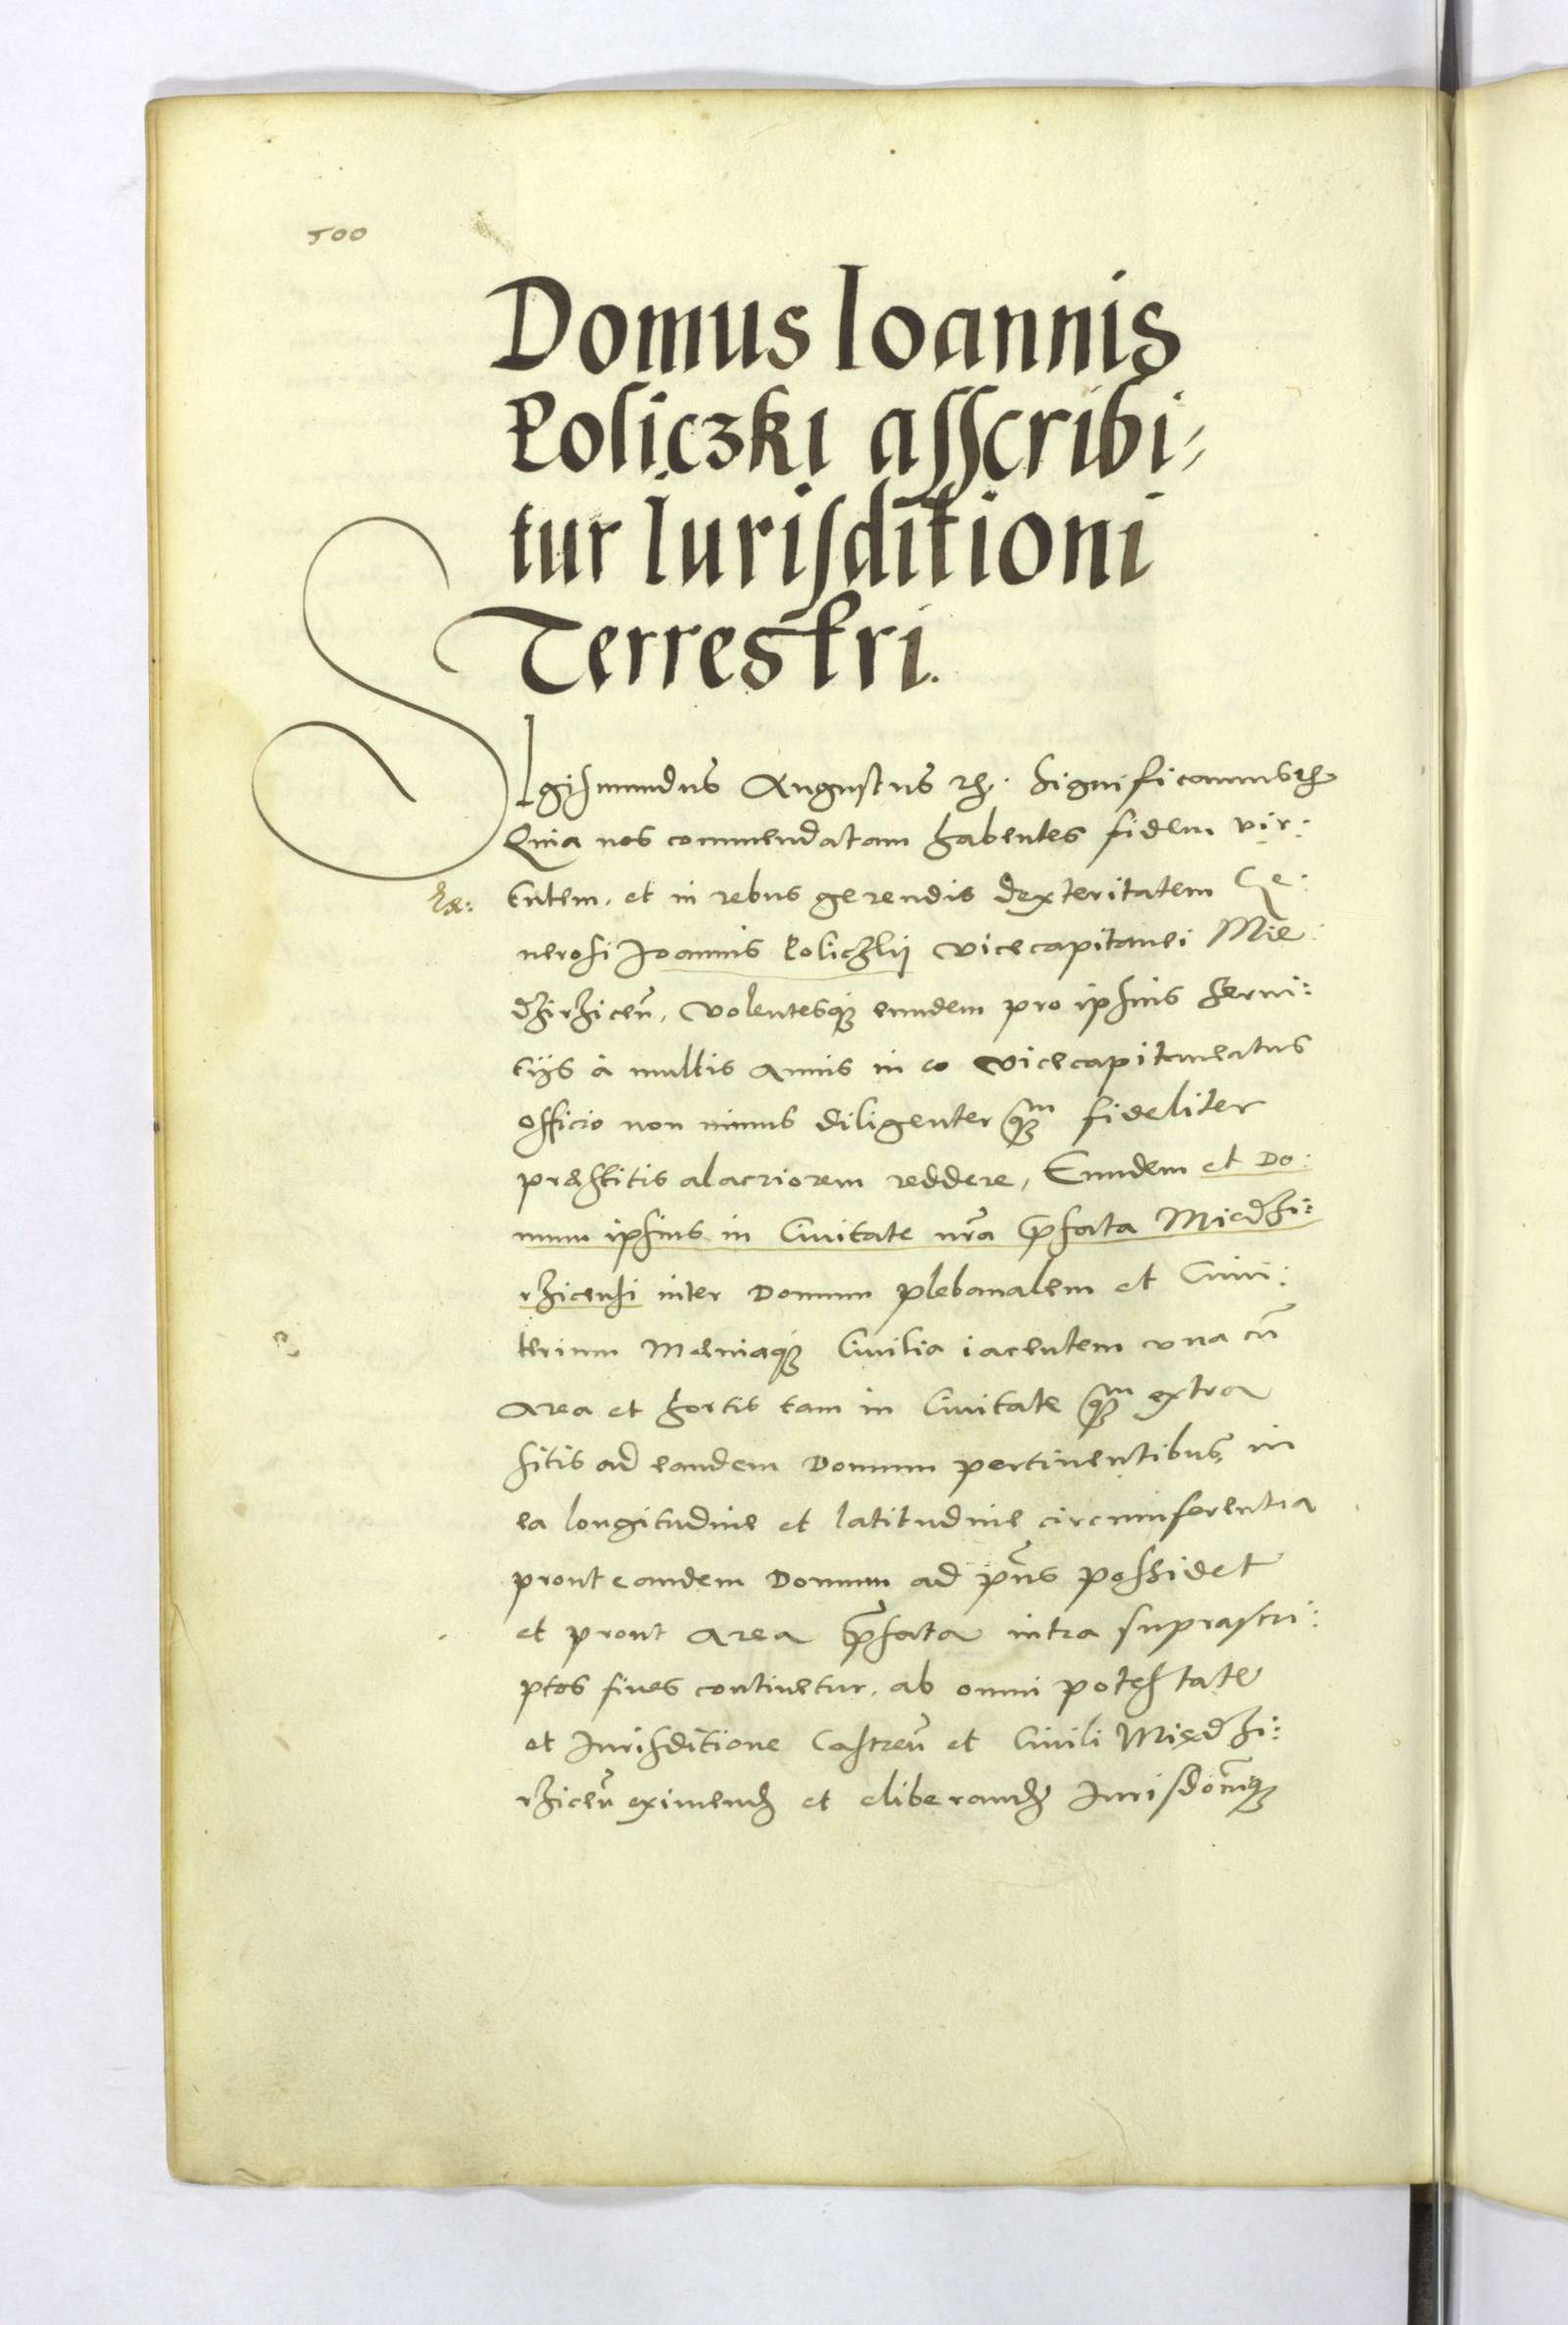 500
Domus Ioannis
Policzki asscribi⸗
tur Iurisditioni
Terrestri.
SIgismundus Augustus etc. Significamus etc
Quia nos commendatam habentes fidem vir:
tutem, et in rebus gerendis dexteritatem Ge:
nerosi Joannis Policzkij vicecapitanei Mie:
dzirziceñ, volentesq₃ eundem pro ipsius serui:
tijs à multis annis in eo vicecapitaneatus
officio non minus diligenter q₃m fideliter
præstitis alacriorem reddere, Eundem et Do:
mum ipsius in Ciuitate nr̃a p̃fata Miedzi:
rzicensi inter Domum plebanalem et Cimi:
terium Mæniaq₃ Ciuilia iacentem vna cũ
Area et hortis tam in Ciuitate q₃m extra
sitis ad eandem Domum pertinentibus, in
ea longitudine et latitudine circumferentia
prout eandem Domum ad p̃ns possidet
et prout Area p̃fata intra suprascri:
ptos fines continetur, ab omni potestate
et Jurisditione Castreñ et Ciuili Miedzi:
rziceñ eximend₃ et eliberand₃ Jurisdõniq₃